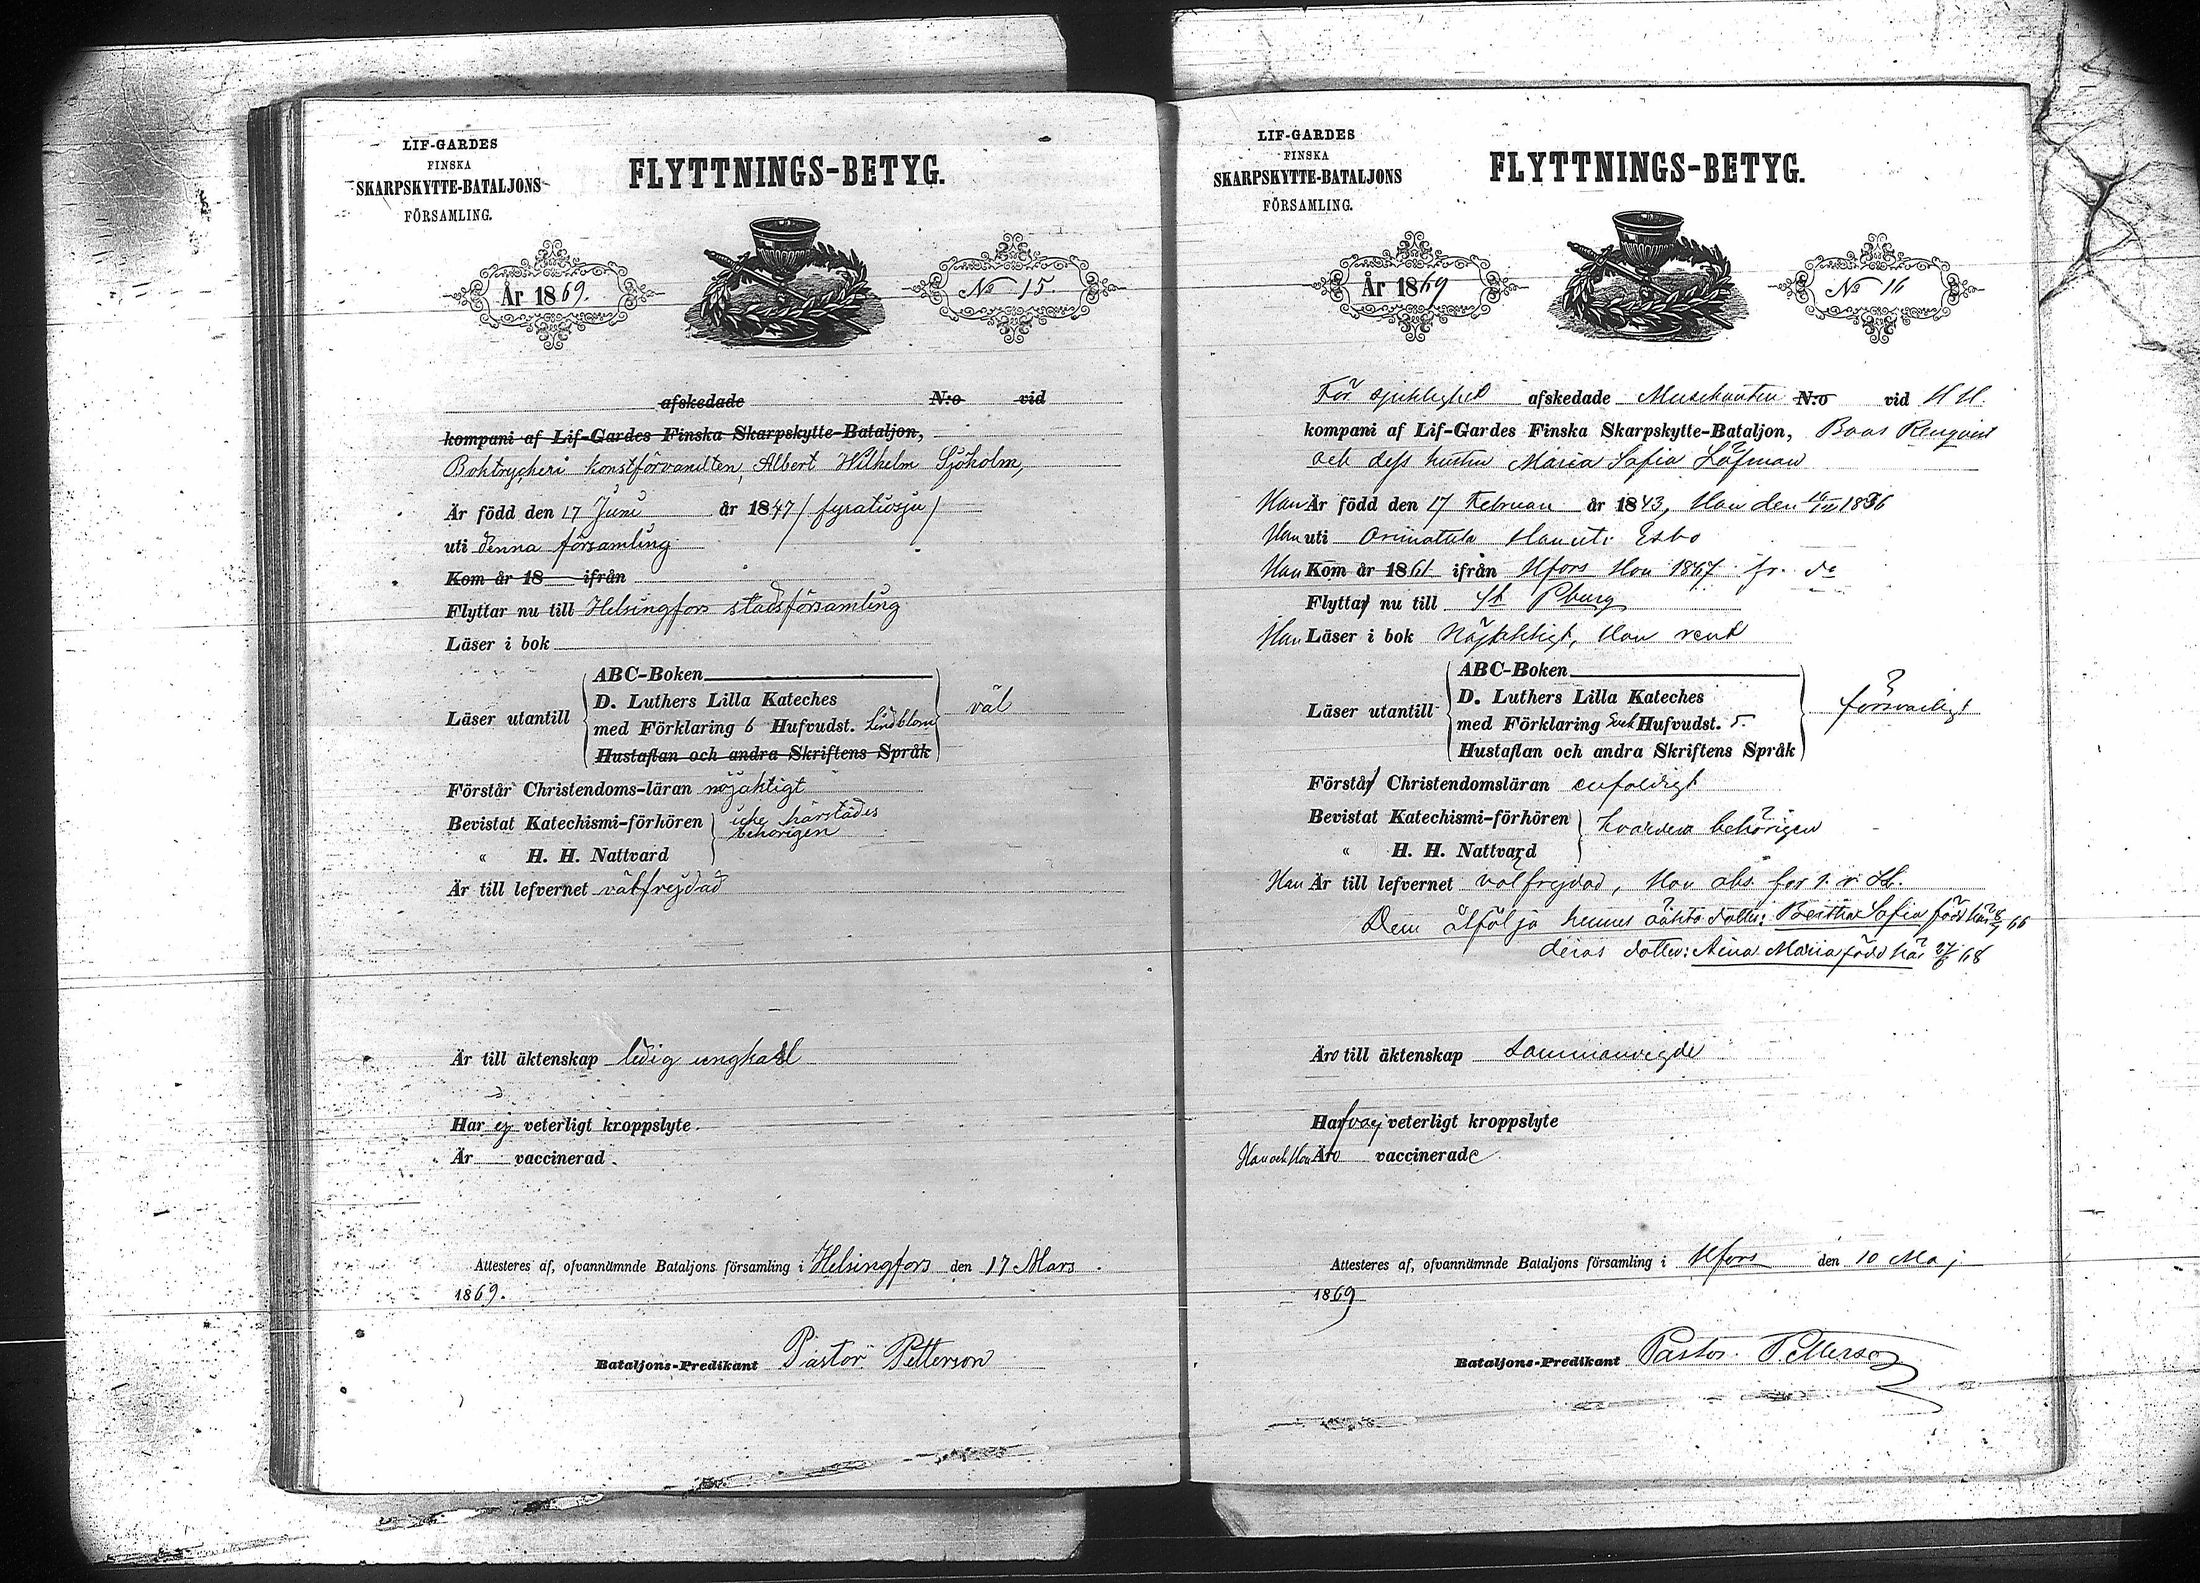 LIF-GARDES
FINSKA
SKARPSKYTTE-BATALJONS
FÖRSAMLING.
FLYTTNINGS-BETYG.
År 1869.
No 15
afskedade N:o vid
kompani af Lif-Gardes Finska Skarpskytte-Bataljon,
Boktryckeri konstförvandten, Albert Wilhelm Sjöholm,
Är född den 17 Juni år 1847 / fyratiosju /
uti denna församling
Kom år 18 ifrån
Flyttar nu till Helsingfors stadsförsamling
Läser i bok
ABC-Boken
Läser utantill D. Luthers Lilla Kateches
med Förklaring 6 Hufvudst. Lindblom väl
Hustaflan och andra Skriftens Språk
Förstår Christendoms-läran nöjaktigt
Bevistat Katechismi-förhören icke härstädes
behörigen
" H. H. Nattvard
Är till lefvernet välfrejdad
Är till äktenskap ledig ungkarl
Har ej veterligt kroppslyte.
Är vaccinerad.
Attesteres af, ofvannämnde Bataljons församling i Helsingfors den 17 Mars
1869.
Bataljons-Predikant Pastor Petterson
LIF-GARDES
FINSKA
SKARPSKYTTE-BATALJONS
FÖRSAMLING.
FLYTTNINGS-BETYG.
År 1869
No 16
För sjuklighet afskedade N:o vid
kompani af Lif-Gardes Finska Skarpskytte-Bataljon, Renqvist
och dess hustru Maria Sofia Löfman
Han Är född den 17 Februari år 1843, Hon den
Han uti Orimattila Hon uti Esbo
Han Kom år 1861 ifrån Hfors Hon 1867 fr. do
Flytta nu till St Pburg
Han Läser i bok Nöjaktigt, Hon rent
ABC-Boken
Läser utantill D. Luthers Lilla Kateches
med Förklaring Hufvudst. 5 försvarligt
Hustaflan och andra Skriftens Språk
Förstå Christendomsläran enfaldigt
Bevistat Katechismi-förhören hvardera behörigen
" H. H. Nattvard
Han Är till lefvernet välfrejdad, Hon abs. för
Dem åtfölja hennes oäkta dotter: Bertha Sofia född här 66
deras dotter: Aina Maria född här 68
Äro till äktenskap Sammanvigde
Hafva ej veterligt kroppslyte
Han och Hon Äro vaccinerade
Attesteres af, ofvannämnde Bataljons församling i Hfors den 10 Maj
1869
Bataljons-Predikant Pastor Petterson